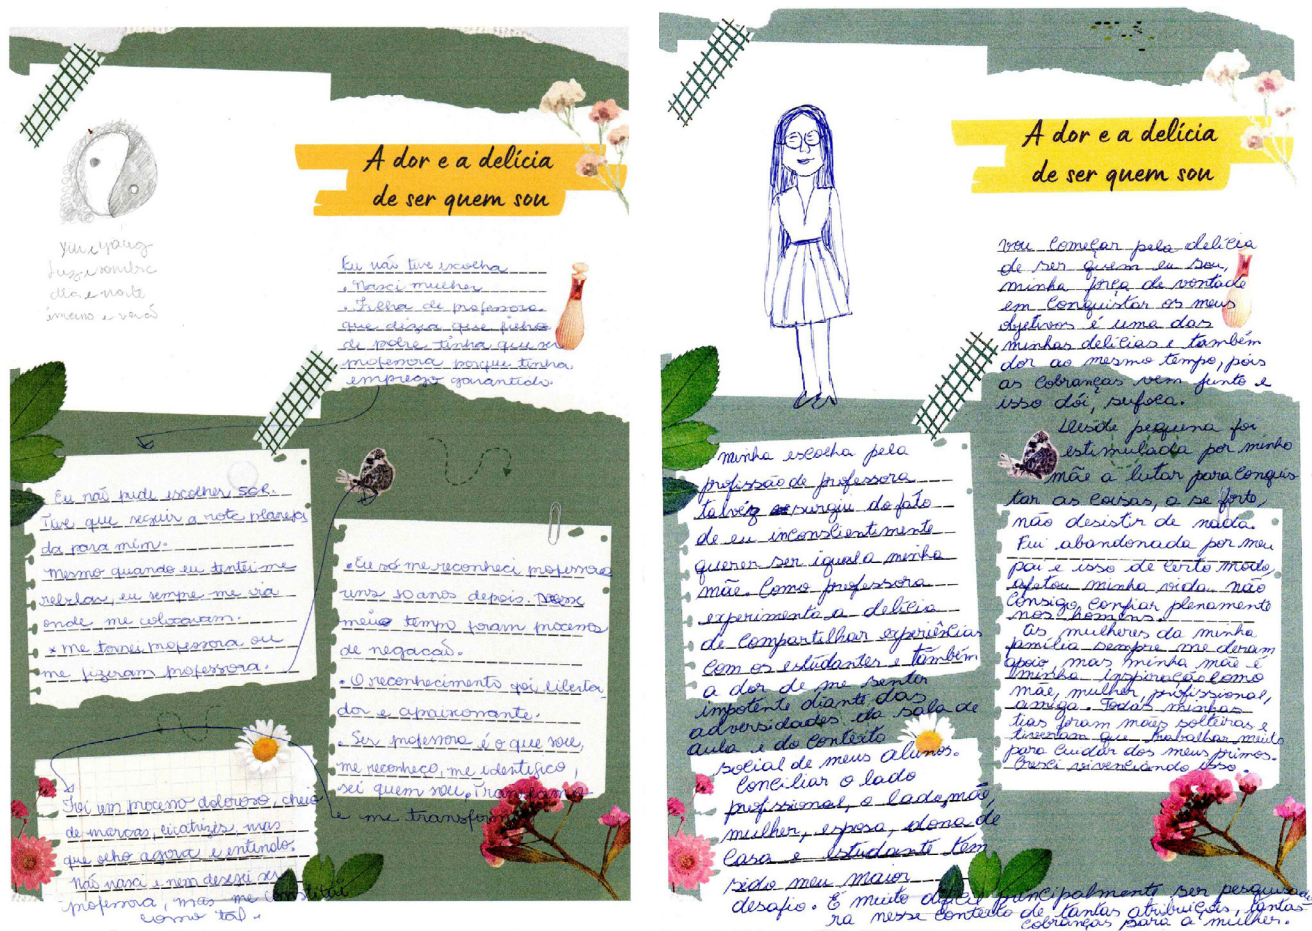 A dor e a delícia
de ser quem sou
Yin e yang
luz e sombra
dia e noite
inverno e verão
Eu não tive escolha
. Nasci mulher
. Filha de professora
que dizia que filho
de pobre tinha que ser
professora porque tinha
emprego garantido.
Eu não pude escolher SER.
Tive que seguir a rota planeja
da para mim.
Mesmo quando eu tentei me
rebelar, eu sempre me via
onde me colocavam.
* me tornei professora ou
me fizeram professora.
. Eu só me reconheci professora
uns 10 anos depois. Nesse
meio tempo foram processos
de negação.
. O reconhecimento foi liberta
dor e apaixonante.
. Ser professora é o que sou,
me reconheço, me identifico,
sei quem sou. Transforma
e me transform
Foi um processo doloroso, cheio
de marcas, cicatrizes, mas
que olho agora e entendo.
Não nasci e nem desejei ser
professora, mas me constitui
como tal.
A dor e a delícia
de ser quem sou
Vou começar pela delícia
de ser quem eu sou,
minha força de vontade
em conquistar os meus
objetivos é uma das
minhas delícias e também
dor ao mesmo tempo, pois
as cobranças vem junto e
isso dói, sufoca.
Desde pequena fui
estimulada por minha
mãe a lutar para conquis
tar as coisas, a se forte,
não desistir de nada.
Fui abandonada por meu
pai e isso de certo modo,
afetou minha vida. não
consigo confiar plenamente
nos homens.
As mulheres da minha
família sempre me deram
apoio, mas minha mãe é
minha inspiração como
mãe, mulher, profissional,
amiga. Todas minhas
tias foram mães solteiras e
tiveram que trabalhar muito
para cuidar dos meus primos.
Cresci vivenciando isso.
Minha escolha pela
profissão de professora
talvez surgiu do fato
de eu inconscientemente
querer ser igual a minha
mãe. Como professora
experimento a delícia
de compartilhar experiências
com os estudantes e também
a dor de me sentir
impotente diante das
adversidades da sala de
aula e do contexto
social de meus alunos.
Conciliar o lado
profissional, o lado mãe,
mulher, esposa, dona de
casa e estudante tem
sido meu maior
desafio. É muito difícil principalmente ser pesquisado
ra nesse contexto de tantas atribuições, tantas
cobranças para a mulher.